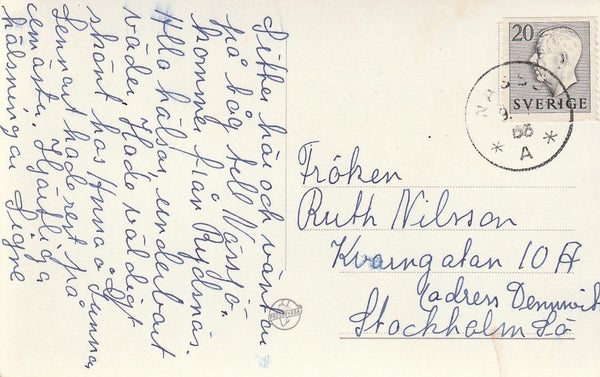 Sitter här och väntar
på tåg till Nässjö.
kommer från Rydsnäs.
Alla hälsar, underbart
väder. Hade väldigt
skönt hos Anna o Gunnar,
Lennart hade rest på
semester. Hjärtliga
hälsningar Signe
20
SVERIGE
NÄSSJÖ
A
Fröken
Ruth Nilsson
Kvarngatan 10 A
adress
Stockholm Sö